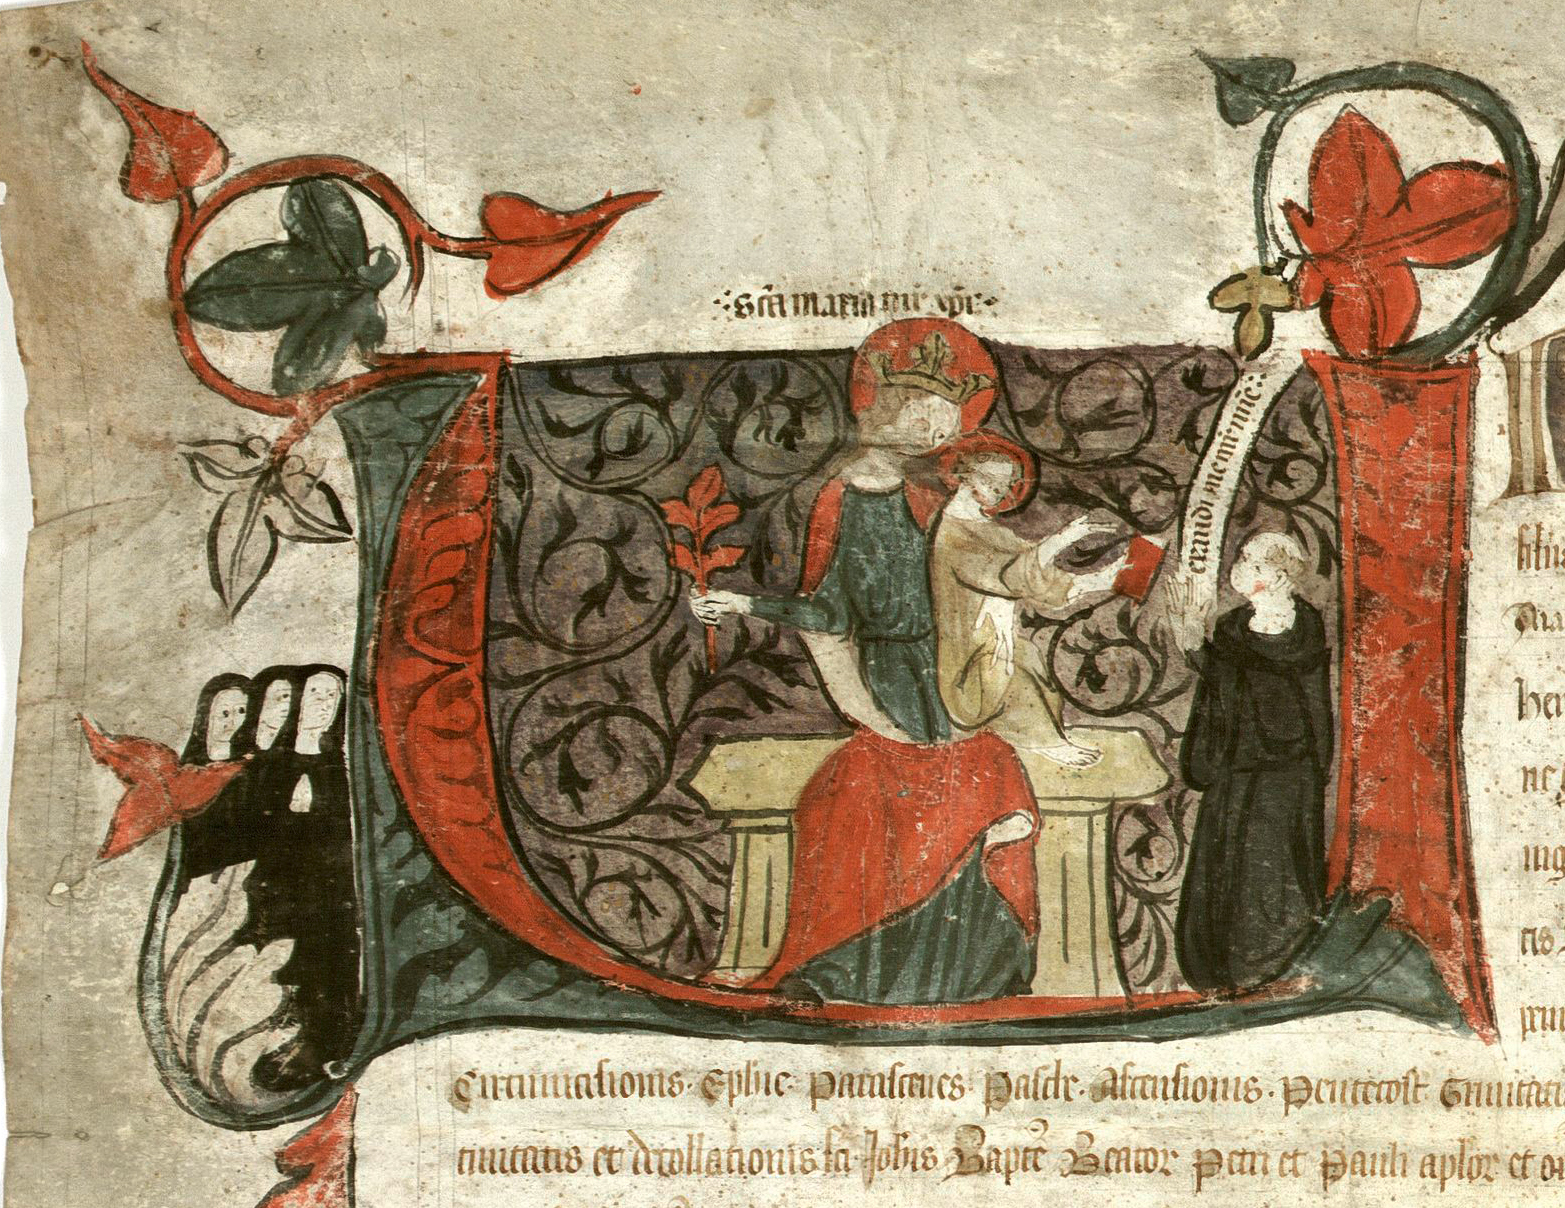 Sc̄a maria m̄r xp̄i
exaudi me emi me
filiis
her
ne
mig
Circumcisionis. Ephie. Parasceues. Pasche. Ascensionis. Pentecost. Trinitatis
tiuitatis et decollationis sc̄i Joh̄is Bapt̄e Beator Petri et Pauli aplor et